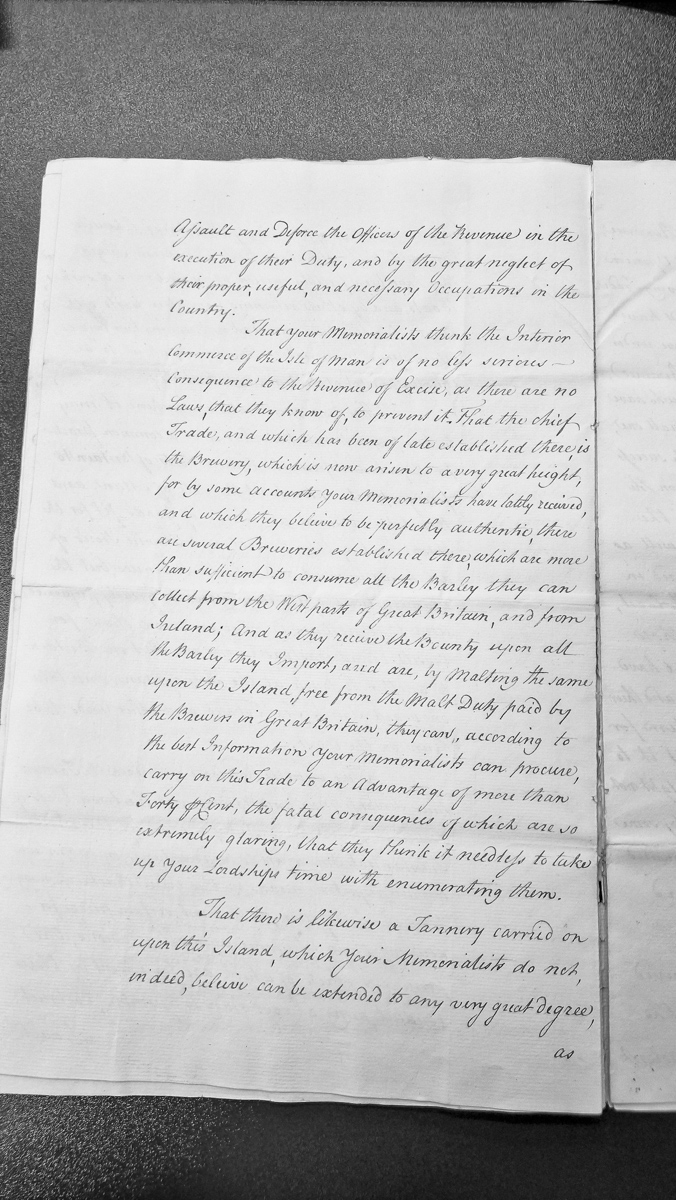 Assault and Deforce the Officers of the Revenue in the
execution of their Duty, and by the great neglect of
their proper, useful, and necessary Occupations in the
Country.
That your Memorialists think the Interior
Commerce of the Isle of Man is of no less serious —
Consequence to the Revenue of Excise, as there are no
Laws, that they know of, to prevent it. That the chief
Trade, and which has been of late established there, is
the Brewery, which is now arisen to a very great height,
for by some accounts your Memorialists have lately received,
and which they believe to be perfectly authentic, there
are several Breweries established there, which are more
than sufficient to consume all the Barley they can
collect from the West parts of Great Britain, and from
Ireland; And as they receive the Bounty upon all
the Barley they Import, and are, by Malting the same
upon the Island, free from the Malt Duty paid by
the Brewers in Great Britain, they can, according to
the best Information your Memorialists can procure,
carry on this Trade to an Advantage of more than
Forty ⅌ Cent, the fatal consequences of which are so
extremely glaring, that they think it needless to take
up your Lordships time with enumerating them.
That there is likewise a Tannery carried on
upon this Island, which Your Memorialists do not,
indeed, beleive can be extended to any very great degree,
as